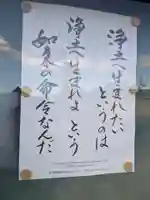 浄土へ生まれたい
というのは
浄土へ生まれよ という
如来の命令なんだ